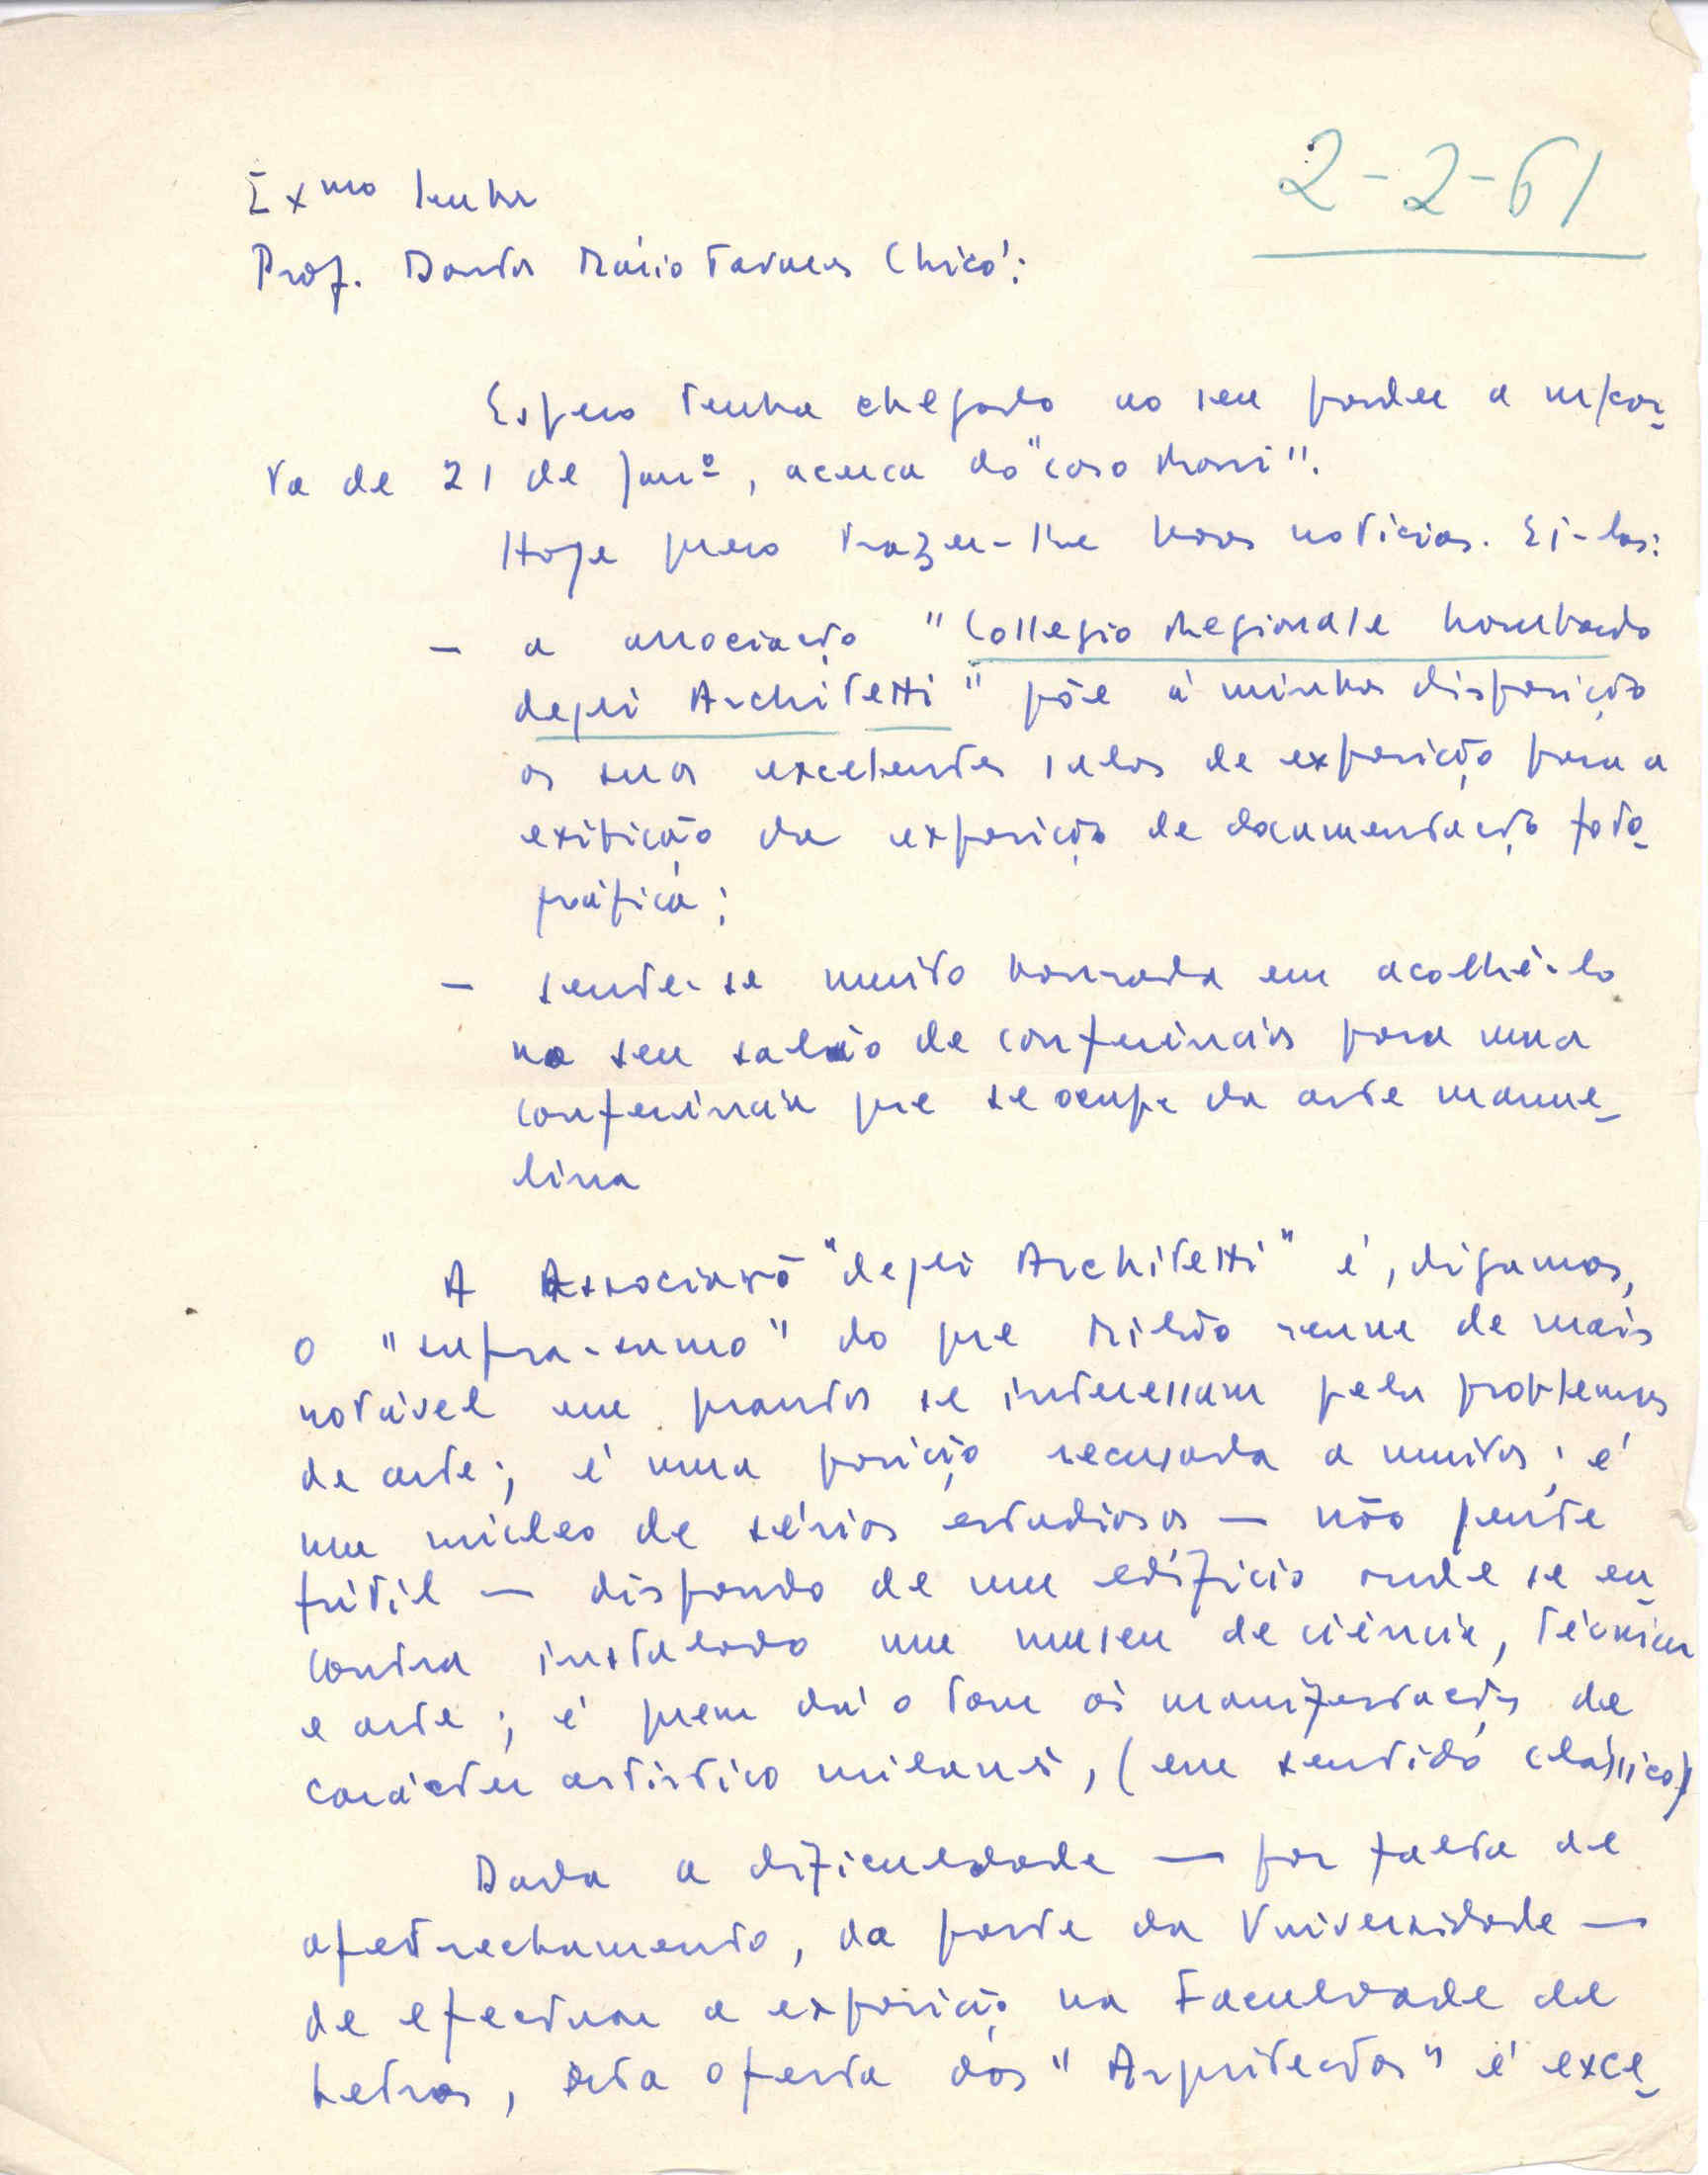 2-2-61
Exmo Senhor
Prof. Doutor Mário Tavares Chicó:
Espero tenha chegado ao seu poder a m/car-
ta de 21 de Janº, acerca do "caso
Hoje quero trazer-lhe novas notícias. Ei-las:
— a associação "Collegio Regionale Lombardo
degli Architetti" põe à minha disposição
as suas excelentes salas de exposição para a
exibição da exposição de documentação foto-
gráfica;
— sente-se muito honrada em acolhê-lo
no seu salão de conferências para uma
conferência que se ocupe da arte manue-
lina
A Associação "degli Architetti" é, digamos,
o "supra-sumo" do que Milão reune de mais
notável em quantos se interessam pelos problemas
de arte; é uma posição recusada a muitos; é
um núcleo de sérios estudiosos — não gente
fútil — dispondo de um edifício onde se en-
contra instalado um museu de ciência, técnica
e arte; é quem dá o tom às manifestações de
carácter artístico milanês, (em sentido clássico)
Dada a dificuldade — por falta de
apetrechamento, da parte da Universidade —
de efectuar a exposição na Faculdade de
Letras, esta oferta dos "Arquitectos" é exce-